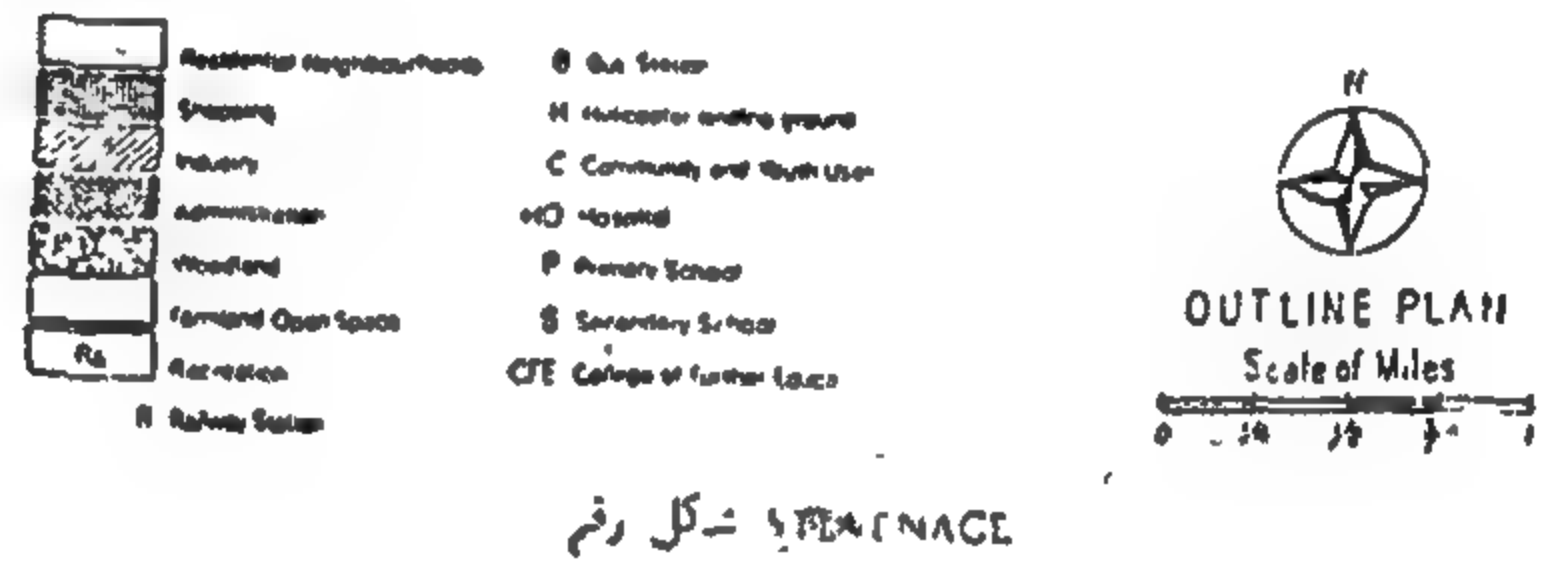 Residential Neighbourhoods
Shopping
Industry
Administration
Woodland
Farmland Open Space
Ra
Recreation
R Railway Station
B Bus Station
H Helicopter landing ground
C Community and Youth Uses
HO Hospital
P Primary School
S Secondary School
CFE College of Further Educa
N
OUTLINE PLAN
Scale of Miles
0 1
شكل رقم